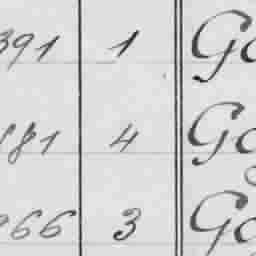 391 1 Go
181 4 Go
966 3 Go